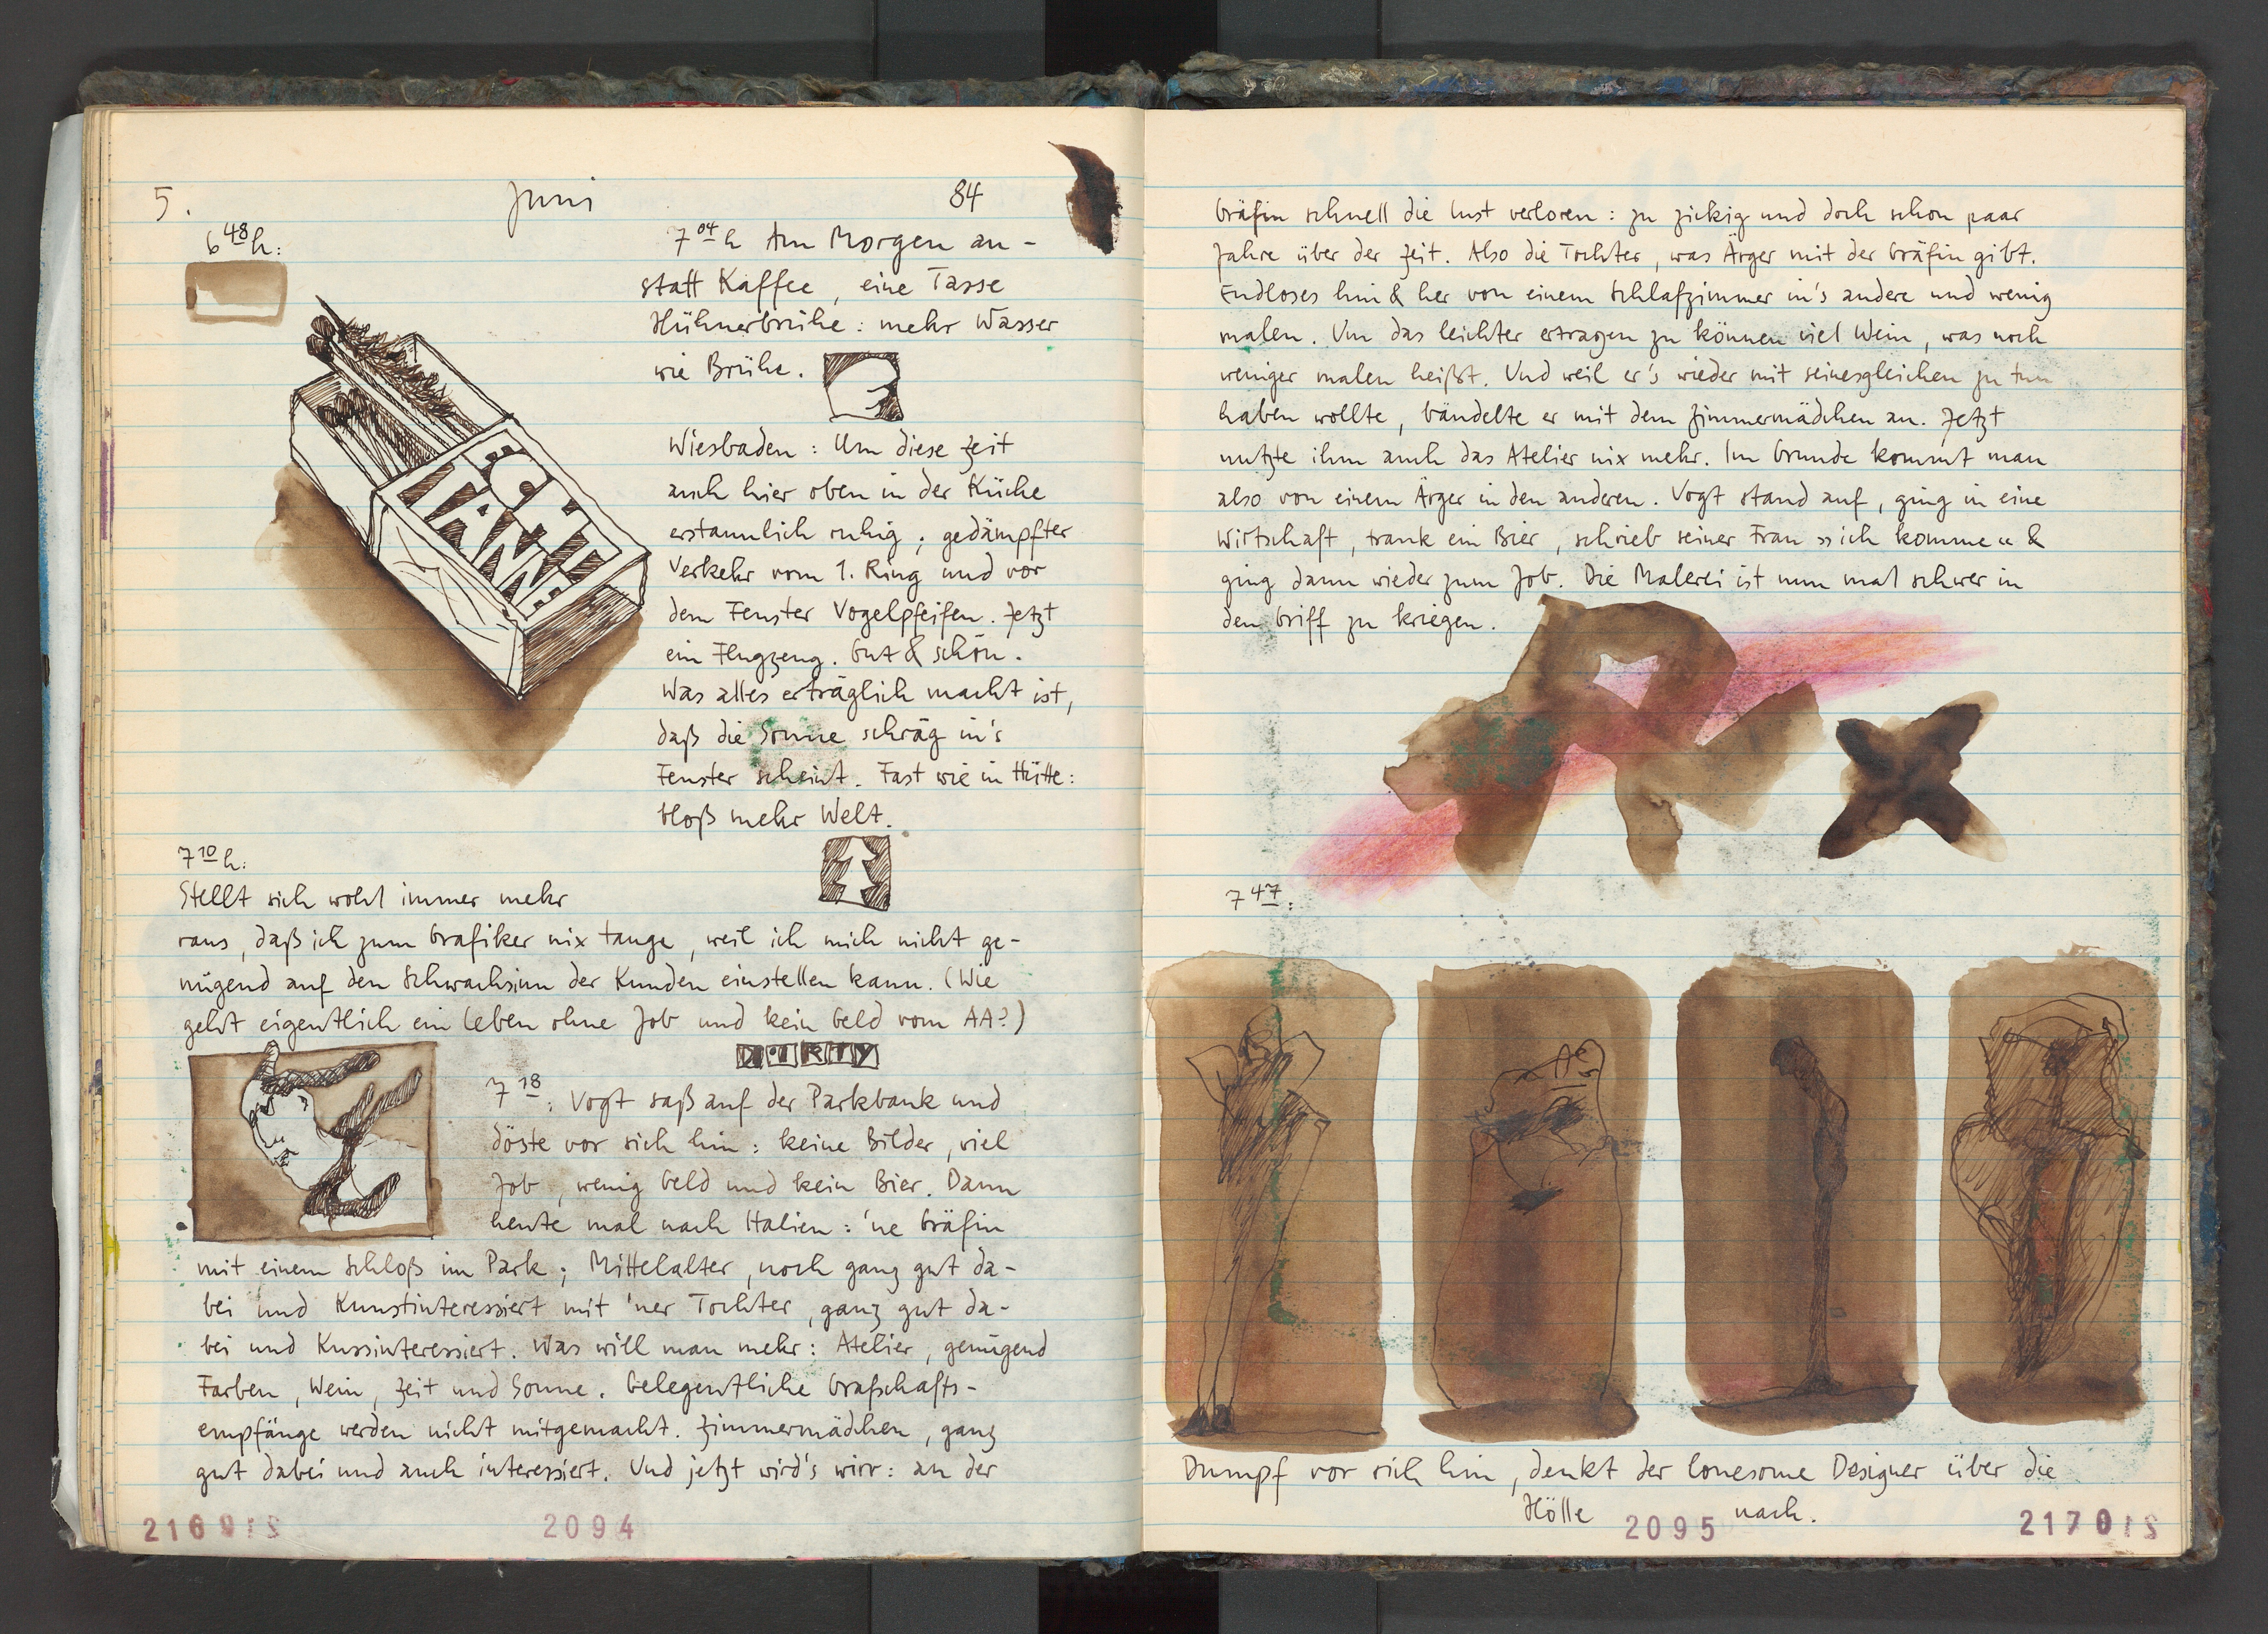 5. Juni 84
6 48 h:
7 04 h Am Morgen an-
statt Kaffee, eine Tasse
Hühnerbrühe: mehr Wasser
wie Brühe.
Wiesbaden: Um diese Zeit
auch hier oben in der Küche
erstaunlich ruhig; gedämpfter
Verkehr vom 1. Ring und vor
dem Fenster Vogelpfeifen. Jetzt
ein Flugzeug. Gut & schön.
Was alles erträglich macht ist,
daß die Sonne schräg in's
Fenster scheint. Fast wie in Hütte:
bloß mehr Welt.
7 10 h:
Stellt sich wohl immer mehr
raus, daß ich zum Grafiker nix tauge, weil ich mich nicht ge-
nügend auf den Schwachsinn der Kunden einstellen kann. (Wie
geht eigentlich ein Leben ohne Job und kein Geld vom AA?)
7 18: Vogt saß auf der Parkbank und
döste vor sich hin: keine Bilder, viel
Job, wenig Geld und kein Bier. Dann
heute mal nach Italien: 'ne Gräfin
mit einem Schloß im Park; Mittelalter, noch ganz gut da-
bei und Kunstinteressiert mit 'ner Tochter, ganz gut da-
bei und Kussinteressiert. Was will man mehr: Atelier, genügend
Farben, Wein, Zeit und Sonne. Gelegentliche Grafschafts-
empfänge werden nicht mitgemacht. Zimmermädchen, ganz
gut dabei und auch interessiert. Und jetzt wird's wirr: an der
2094
Gräfin schnell die Lust verloren: zu zickig und doch schon paar
Jahre über der Zeit. Also die Tochter, was Ärger mit der Gräfin gibt.
Endloses hin & her von einem Schlafzimmer in's andere und wenig
malen. Um das leichter ertragen zu können viel Wein, was noch
weniger malen heißt. Und weil er's wieder mit seinesgleichen zu tun
haben wollte, bändelte er mit dem Zimmermädchen an. Jetzt
nutzte ihm auch das Atelier nix mehr. Im Grunde kommt man
also von einem Ärger in den anderen. Vogt stand auf, ging in eine
Wirtschaft, trank ein Bier, schrieb seiner Frau »ich komme« &
ging dann wieder zum Job. Die Malerei ist nun mal schwer in
den Griff zu kriegen.
7 47:
Dumpf vor sich hin, denkt der lonesome Designer über die
Hölle nach.
2095 2170